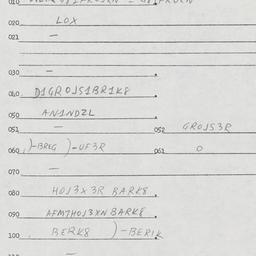 010
020 LOX
021 —
030 —
040 D1GROJS1BR1K8
050 AN1NDZL
051 — 052 GROJS3R
060 )-BREG )-UF3R 061 O
070 —
080 HOJ3X3R BARK8
090 AFM7HOJ3XNBARK8
100 BERK8 )-BERIK
—